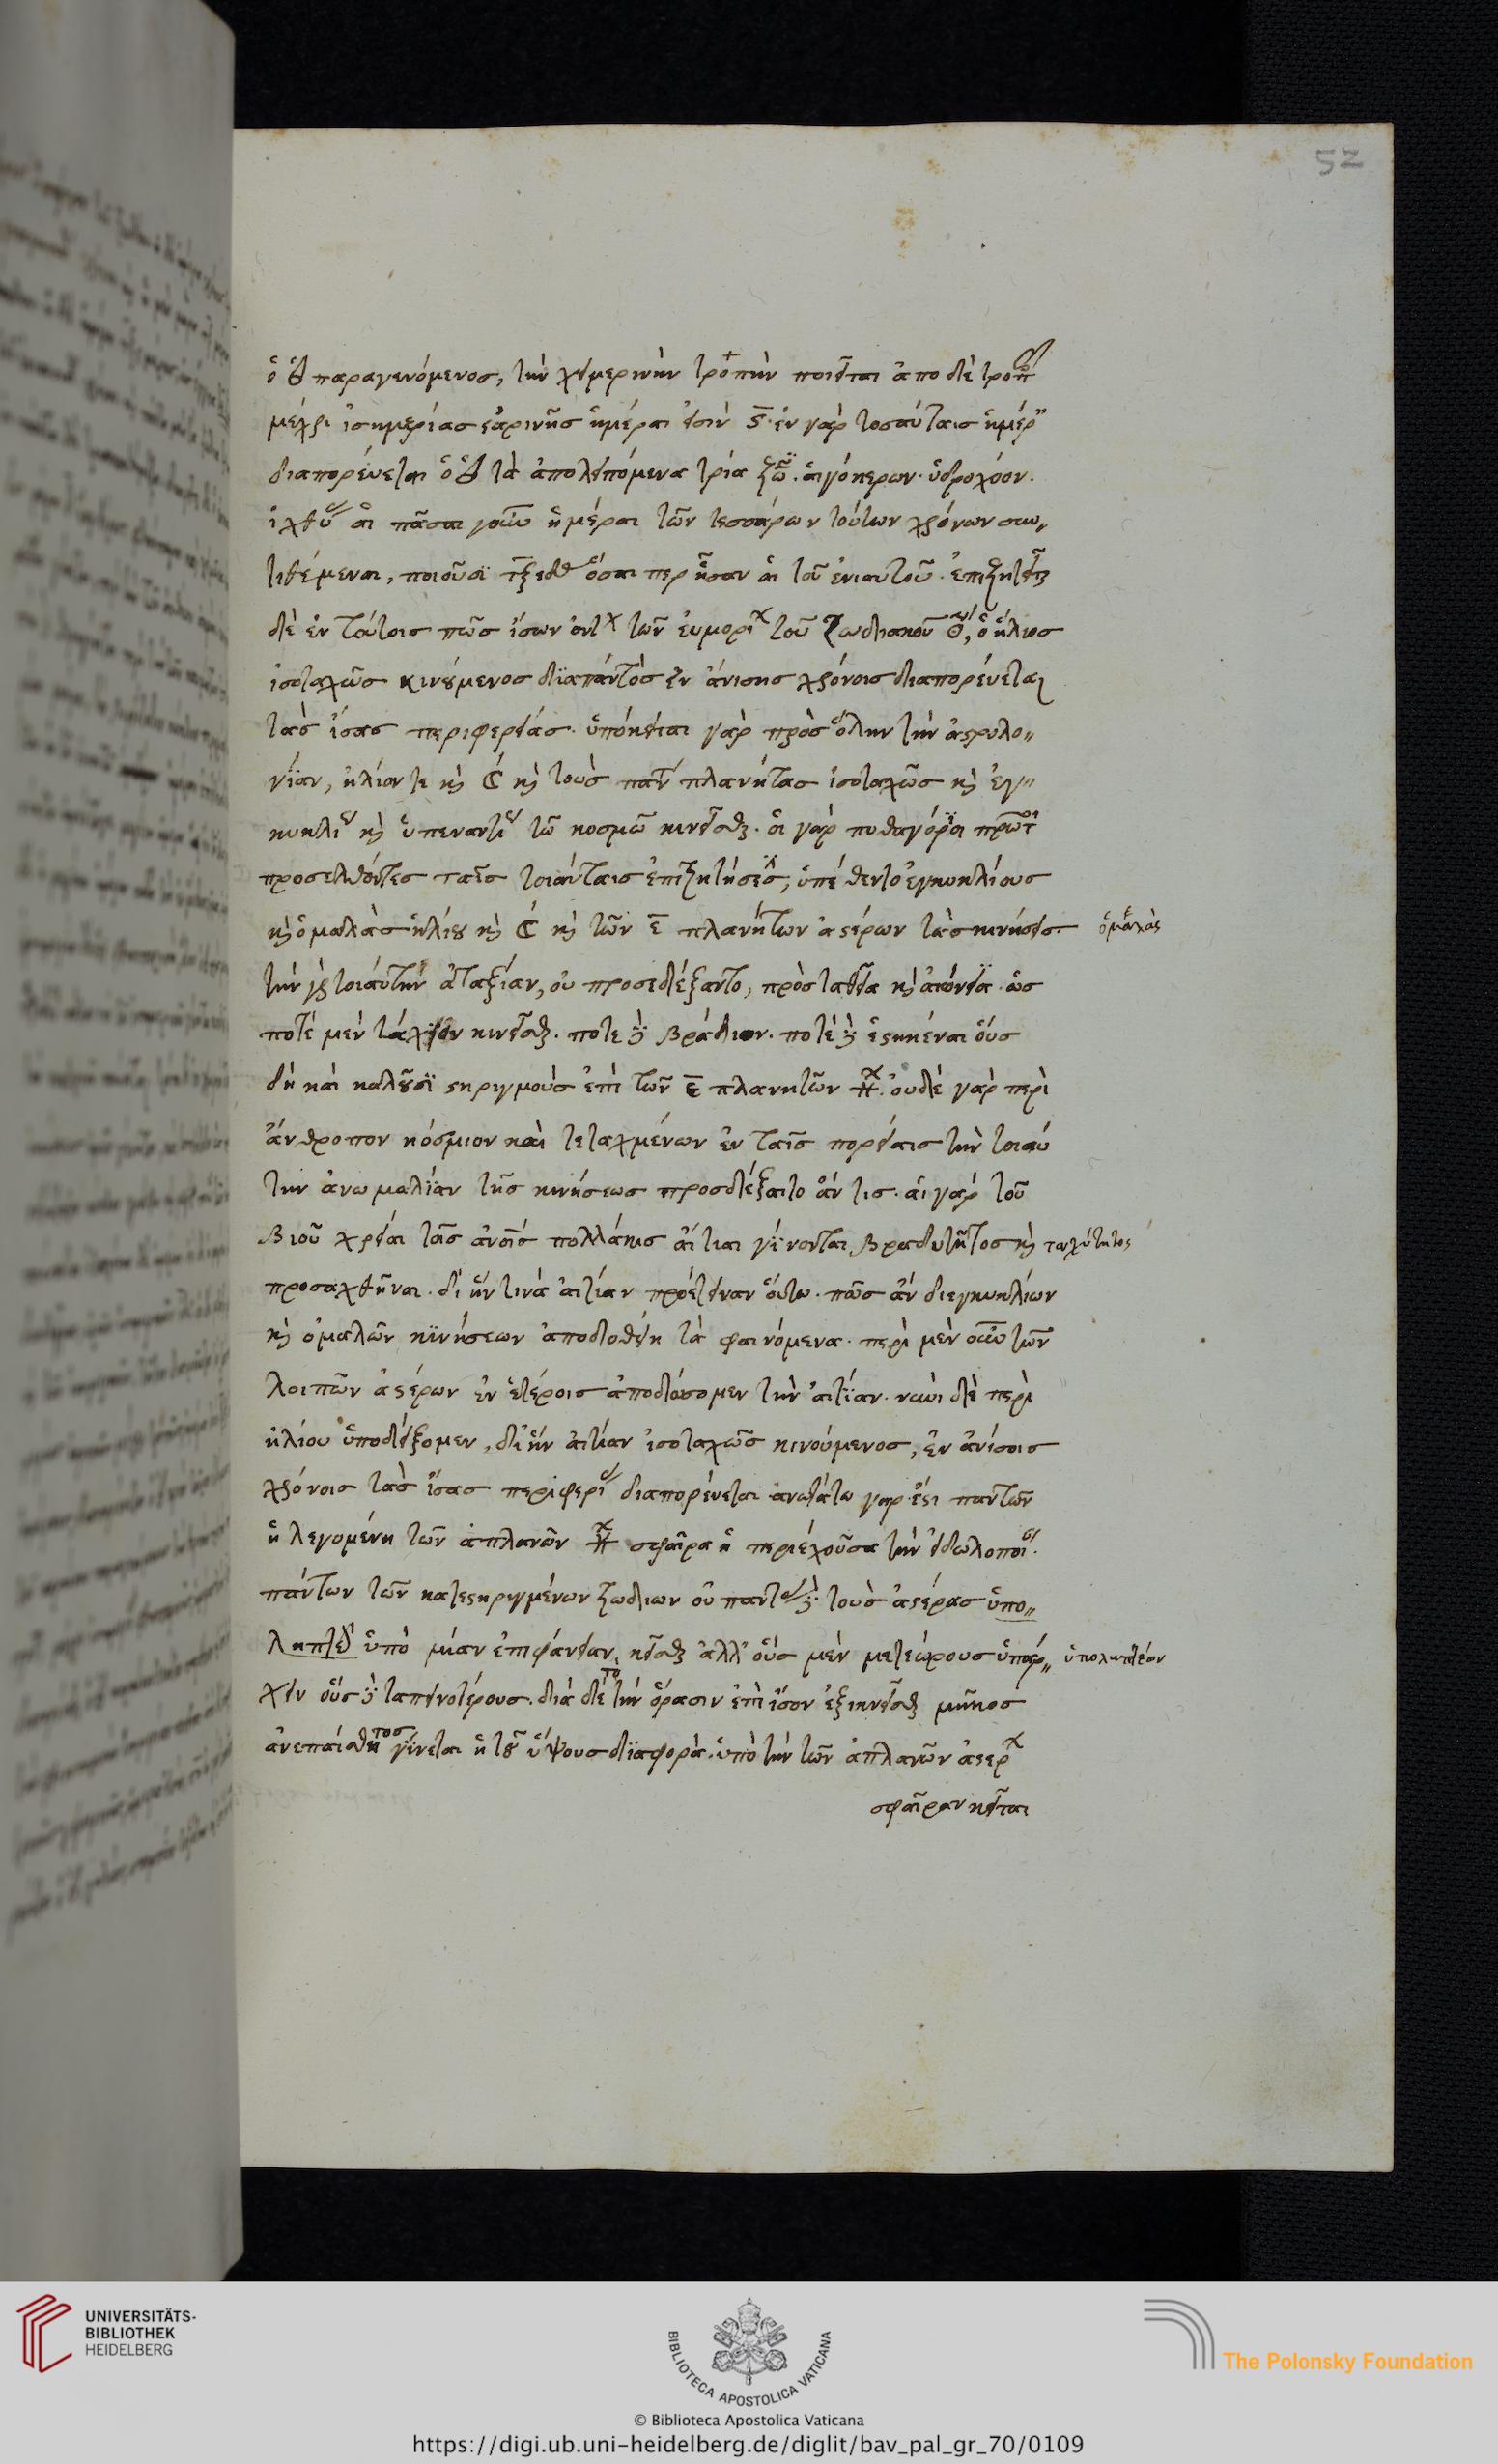 52
ὁ ἥλιος παραγενόμενος, τὴν χειμερινὴν τροπὴν ποιεῖται ἀπο δὲ τροπῶν
μέχρι ἰσημερίας ἐαρινῆς ἡμέραι εἰσὶν ϟ. ἐν γὰρ τοσαύταις ἡμέραις
διαπορεύεται ὁ ἥλιος τὰ ἀπολειπόμενα τρία ζῴδια. αἰγόκερων. ὑδροχόον.
ἰχθῦς αἱ πᾶσαι γοῦν ἡμέραι τῶν τεσσάρων τούτων χρόνων συν„
τιθέμεναι, ποιοῦσϊ τξεδʹʹ ὅσαι περ ἦσαν αἱ τοῦ ἐνιαυτοῦ. ἐπιζητεῖται
δὲ ἐν τούτοις πῶς ἴσων ὄντων τῶν τοῦ ζωδιακοῦ ὁ ἥλιος
ἰσοταχῶς κινούμενος διαπάντὸς ἐν ἀνίσοις χρόνοις διαπορεύεται
τὰς ἴσας περιφερείας. ὑπόκειται γὰρ πρὸς ὅλην τὴν ἀστρολο„
γίαν, ἥλιόν τε κὶ ☾ κὶ τοὺς πλανήτας ἰσοταχῶς κὶ ἐγ„
κυκλίως κὶ ὑπεναντίως τῶ κοσμῶ κινεῖσθαι. οἱ γὰρ πυθαγόρειοι πρῶτοι
προσελθόντες ταῖς τοιαύταις ἐπιζητήσεσι, ὑπέθεντο ἐγκυκλίους
κὶ ὁμαλὰς ἡλίου κὶ ☾ κὶ τῶν ε πλανήτων ἀστέρων τὰς κινήσεις ὁμαλὰς
τὴν γὰρ τοιαύτην ἀταξίαν, οὐ προσεδέξαντο, πρὸς τὰ θεῖα κὶ αἰώνια. ὡς
ποτὲ μὲν τάχϊον κινεῖσθαι. ποτε δὲ βράδιον. ποτὲ δὲ ἑστηκέναι οὕς
δὴ καὶ καλοῦσϊ στηριγμοὺς ἐπὶ τῶν ε πλανητῶν ἀστέρων. οὐδὲ γὰρ περὶ
ἄνθροπον κόσμιον καὶ τεταγμένων ἐν ταῖς πορείαις τὴν τοιαύ
την ἀνωμαλίαν τῆς κινήσεως προσδέξαιτο ἄν τις. αἱ γὰρ τοῦ
βιοῦ χρεῖαι τοῖς ἀνοῖς πολλάκις αἴτιαι γίνονται βραδυτῆτος κὶ ταχύτητος
προσαχθῆναι. δι ἥν τινὰ αἰτίαν προέτειναν οὕτω. πῶς ἂν διεγκυκλίων
κὶ ὁμαλῶν κϊνήσεων ἀποδοθείη τὰ φαινόμενα. περὶ μὲν οὖν τῶν
λοιπῶν ἀστέρων ἐν ἑτέροις ἀποδώσομεν τὴν αἰτίαν. νυνὶ δὲ περὶ
ἡλίου ὑποδείξομεν, δι ἣν αἰτίαν ἰσοταχῶς κινούμενος, ἐν ἀνίσοις
χρόνοις τὰς ἴσας περιφερείας διαπορεύεται ἀνωτάτω γαρ ἐστι παντῶν
ἡ λεγομένη τῶν ἀπλανῶν ἀστέρων σφαῖρα ἡ περιέχουσα τὴν εἰδωλοποιΐαν.
πάντων τῶν κατεστηριγμένων ζωδίων οὐ παντας δὲ τοὺς ἀστέρας ὑπο„
ληπτέον ὑπὸ μίαν ἐπιφάνειαν κεῖσθαι ἀλλ' οὓς μὲν μετεώρους ὑπάρ„ ὑποληπτέον
χειν οὓς δὲ ταπεινοτέρους. διὰ δὲ τὸ τὴν ὅρασιν ἐπὶ ἴσον ἐξικνεῖσθαι μῆκος
ἀνεπαίσθητος γίνεται ἡ τοῦ ὕψους διαφορὰ. ὑπὸ τὴν τῶν ἀπλανῶν ἀστέρων
σφαῖραν κεῖται
UNIVERSITÄTS-
BIBLIOTHEK
HEIDELBERG
BIBLIOTECA APOSTOLICA VATICANA
The Polonsky Foundation
© Biblioteca Apostolica Vaticana
https://digi.ub.uni-heidelberg.de/diglit/bav_pal_gr_70/0109